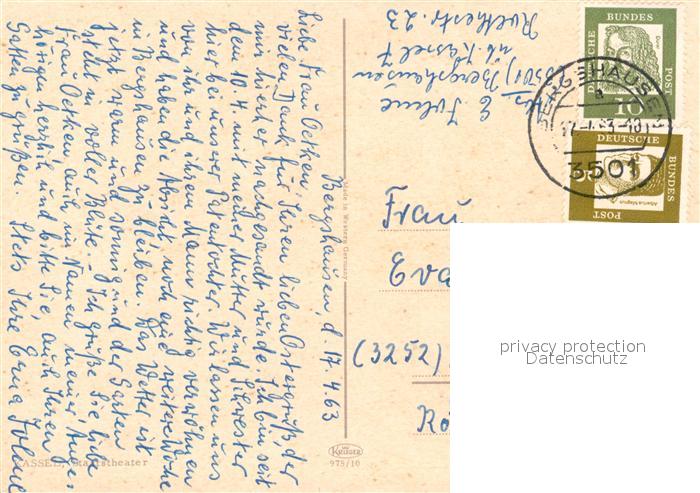 Berghausen, d. 17. 4. 63
Liebe Frau Oetken,
vielen Dank für Ihren lieben Ostergruß, der
mir hierher nachgesandt wurde. Ich bin seit
dem 10. 4. mit meiner Mutter und Schwester
hier bei unserer Patentochter. Wir lassen uns
von ihr und ihrem Mann richtig verwöhnen
und haben die Absicht, noch eine weitere Woche
in Berghausen zu bleiben. Das Wetter ist
jetzt warm und sonnig und der Garten
steht in voller Blüte. - Ich grüße Sie, liebe
Frau Oetken, auch im Namen meiner Ange-
hörigen herzlich und bitte Sie, auch Ihren
Gatten zu grüßen. Stets Ihre Erna
KASSEL, Staatstheater
Made in Western Germany
KRÜGER
975/10
E.
(3501) Berghausen
üb. Kassel 7
23
Frau
Eva
(3252)
DEUTSCHE BUNDESPOST
Dürer
10
DEUTSCHE BUNDESPOST
Albertus Magnus
5
3501
privacy protection
Datenschutz